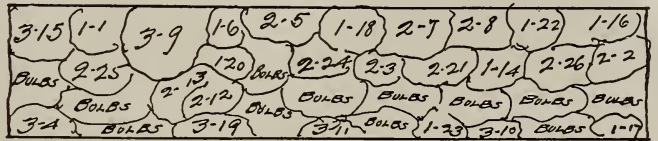 3-15 1-1 3-9 1-6 2-5 1-18 2-7 2-8 1-22 1-16
BULBS 2-25 1-20 BULBS 2-24 2-3 2-21 1-14 2-26 2-2
BULBS 2-13 2-12 BULBS BULBS BULBS BULBS BULBS BULBS
3-4 BULBS 3-19 3-11 BULBS 1-23 3-10 BULBS 1-17